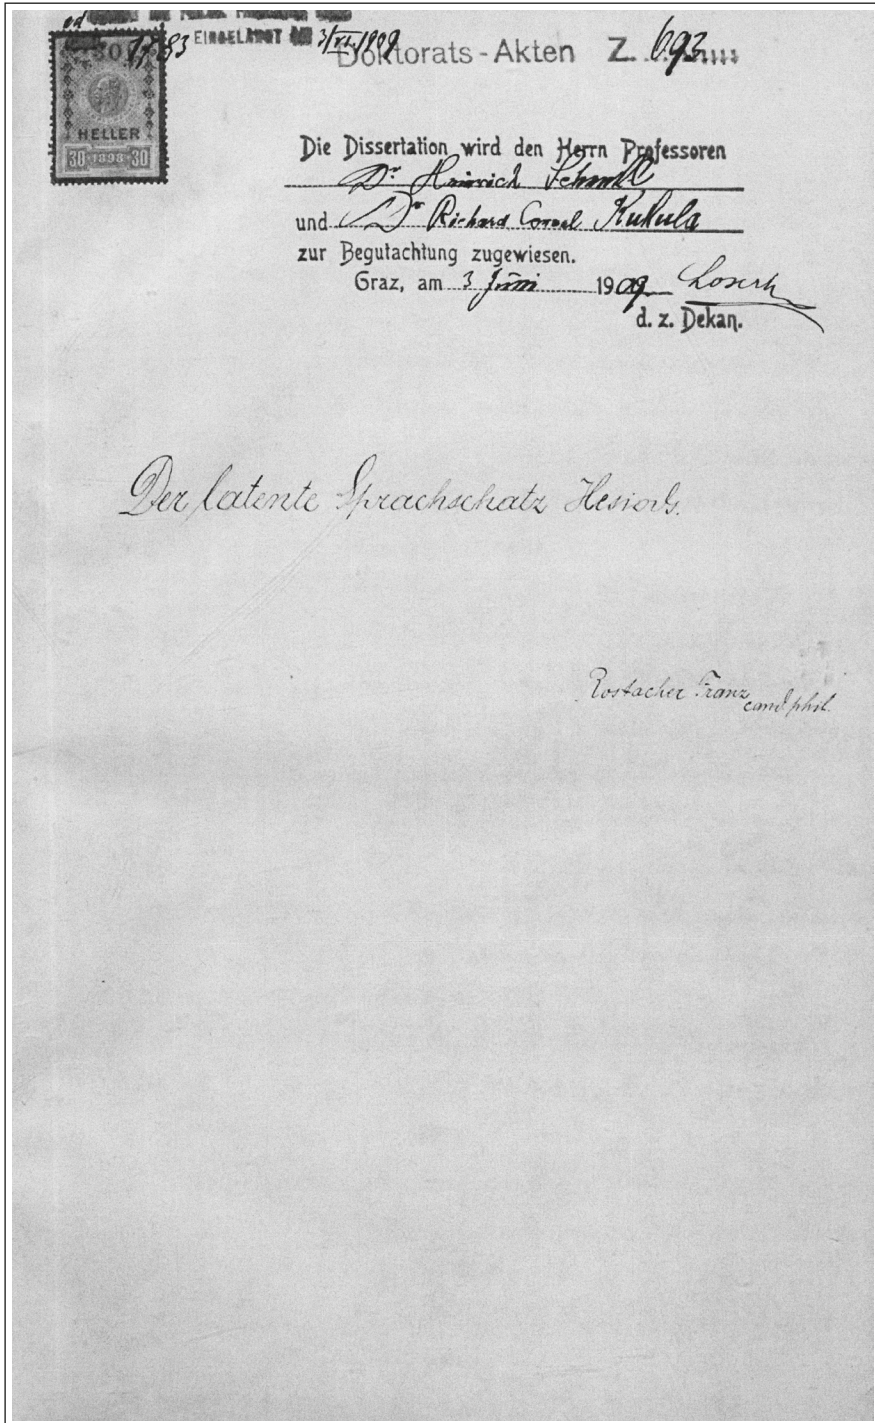 EINGELANGT AM 3/VI. 1909
Doktorats-Akten Z. 693
30
HELLER
30 1898 30
Die Dissertation wird den Herrn Professoren
Dr Heinrich Schenkl
und Dr Richard Cornel Kukula
zur Begutachtung zugewiesen.
Graz, am 3 Juni 1909 Loserth
d. z. Dekan.
Der latente Sprachschatz Hesiods.
Rostacher Franz
cand phil.